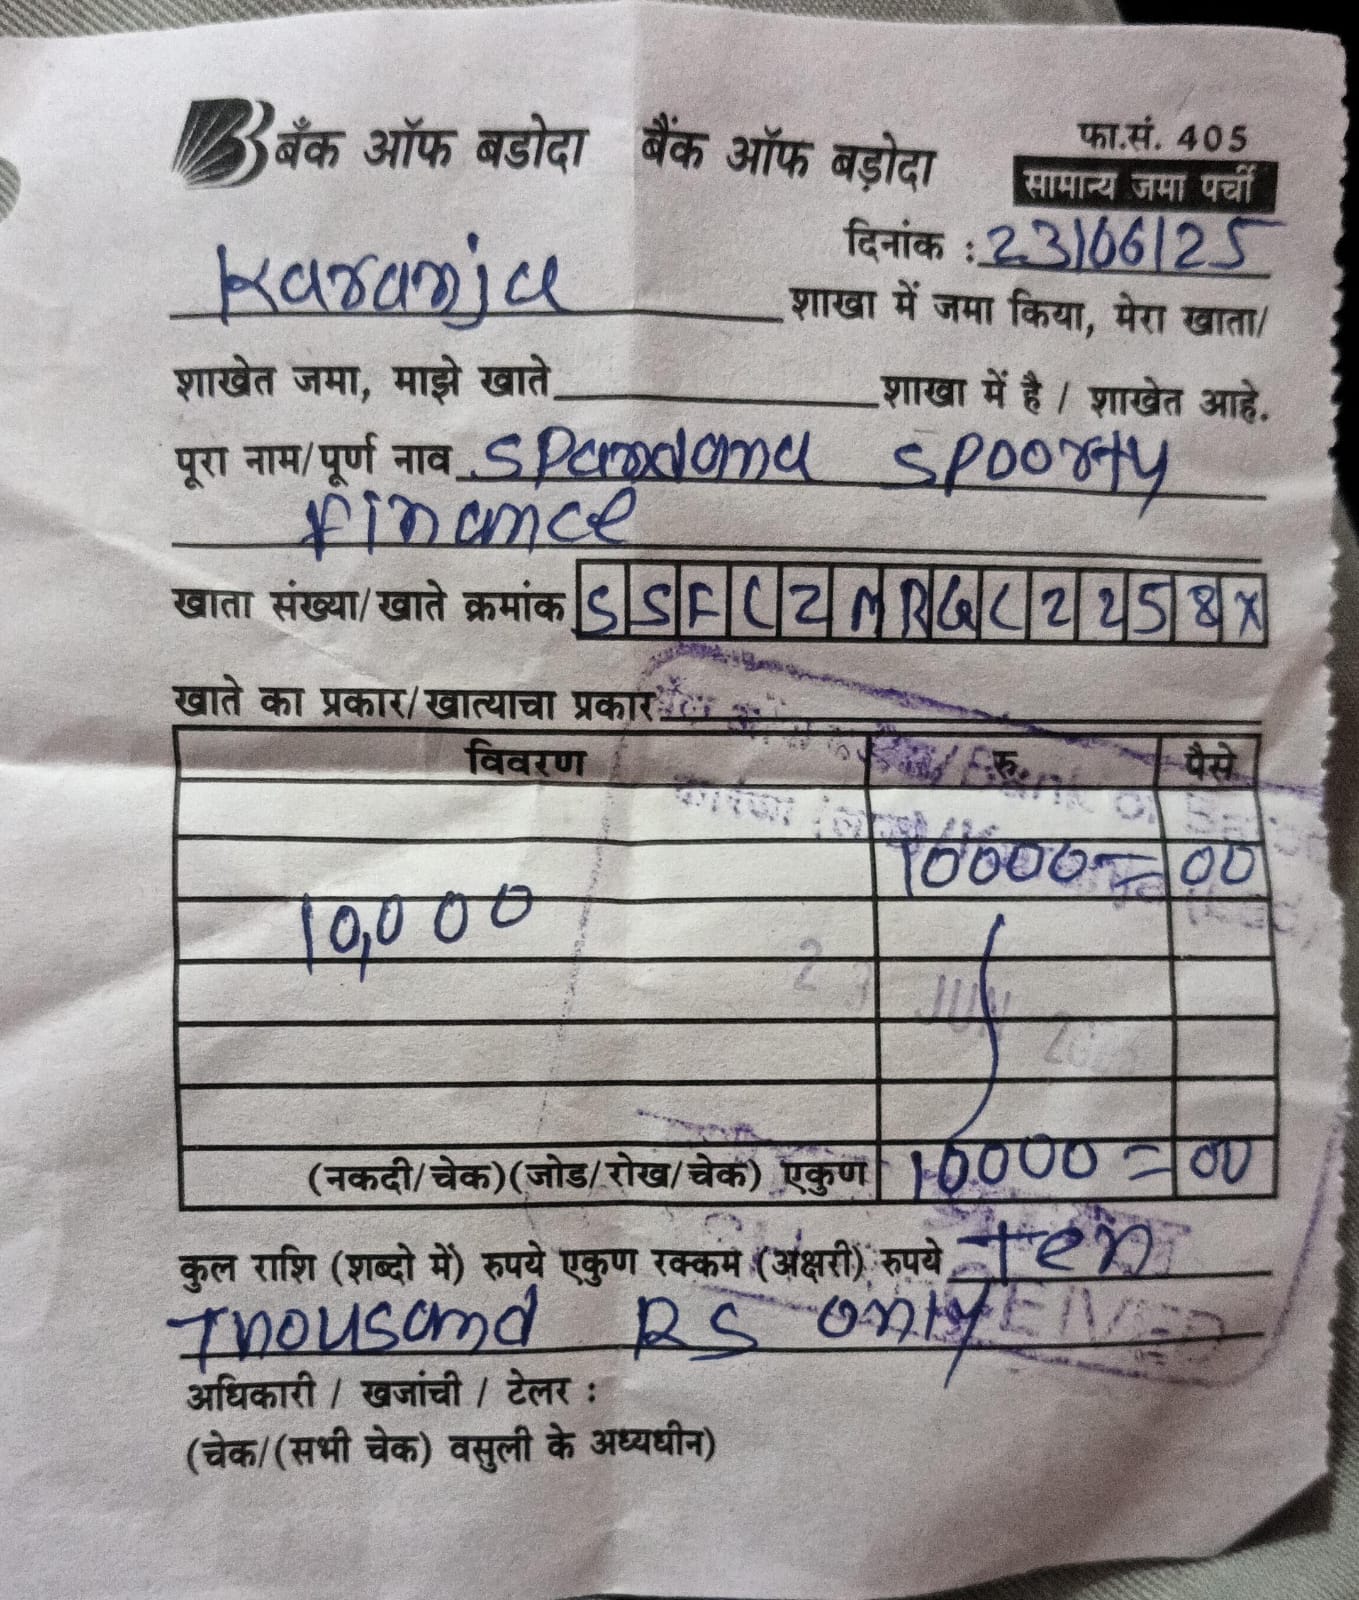 बँक ऑफ बडोदा बैंक ऑफ बड़ोदा
फा.सं. 405
सामान्य जमा पर्ची
दिनांक : 23/06/25
Karanja शाखा में जमा किया, मेरा खाता/
शाखेत जमा, माझे खाते शाखा में है / शाखेत आहे.
पूरा नाम/पूर्ण नाव Spandana Spoorty
Finance
खाता संख्या/खाते क्रमांक S S F C Z M R G C 2 2 5 8 X
खाते का प्रकार/खात्याचा प्रकार
विवरण रु. पैसे
10000= 00
10,000
23 JUN
(नकदी/चेक)(जोड/रोख/चेक) एकुण 10000= 00
कुल राशि (शब्दो में) रुपये एकुण रक्कम (अक्षरी) रुपये Ten
Thousand RS only
अधिकारी / खजांची / टेलर :
(चेक/(सभी चेक) वसुली के अध्यधीन)